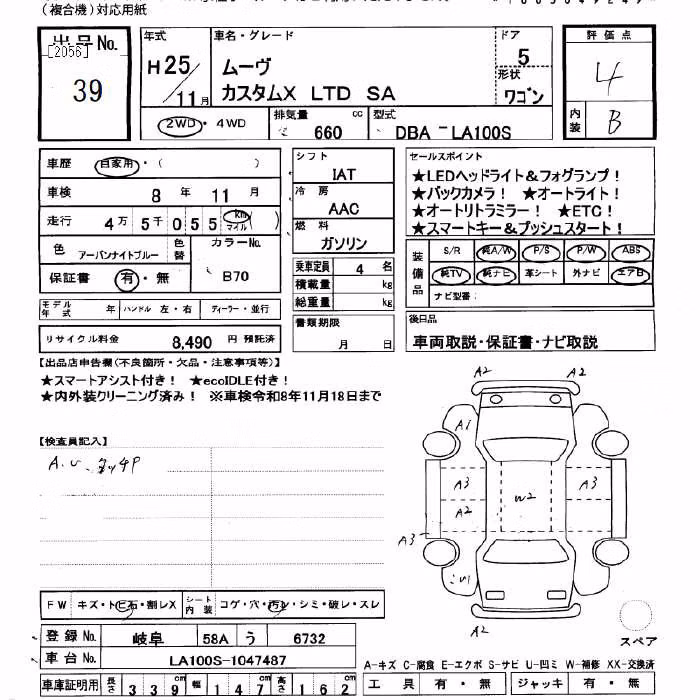 (複合機)対応用紙
出品No.
[2056]
39
年式
H25/11月
車名・グレード
ムーヴ
カスタムX LTD SA
ドア
5
形状
ワゴン
評価点
4
内装
B
2WD・4WD
排気量 cc
660
型式
DBA - LA100S
車歴 自家用・( )
車検 8年 11月
走行 4万5千055 km マイル ( )
色 アーバンナイトブルー 色替
カラーNo.
B70
保証書 有・無
モデル年式 年 ハンドル 左・右 ディーラー・並行
リサイクル料金 8,490 円 預託済
シフト
IAT
冷房
AAC
燃料
ガソリン
乗車定員 4 名
積載量 kg
総重量 kg
書類期限
月 日
セールスポイント
★LEDヘッドライト&フォグランプ!
★バックカメラ! ★オートライト!
★オートリトラミラー! ★ETC!
★スマートキー&プッシュスタート!
装備品
S/R 純A/W P/S P/W ABS
純TV 純ナビ 革シート 外ナビ エアB
ナビ型番:
後日品
車両取説・保証書・ナビ取説
【出品店申告欄(不良箇所・欠品・注意事項等)】
★スマートアシスト付き! ★ecoIDLE付き!
★内外装クリーニング済み! ※車検令和8年11月18日まで
【検査員記入】
A.U. タッチP
A2 A2
A1
A3 A3
A2 W2
A3
A2
FW キズ・トビ石・割レX
シート内装 コゲ・穴・汚レ・シミ・破レ・スレ
登録No. 岐阜 58A う 6732
車台No. LA100S-1047487
車庫証明用 長さ 339 cm 幅 147 cm 高さ 162 cm
スペア
A-キズ C-腐食 E-エクボ S-サビ U-凹ミ W-補修 XX-交換済
工具 有・無 ジャッキ 有・無